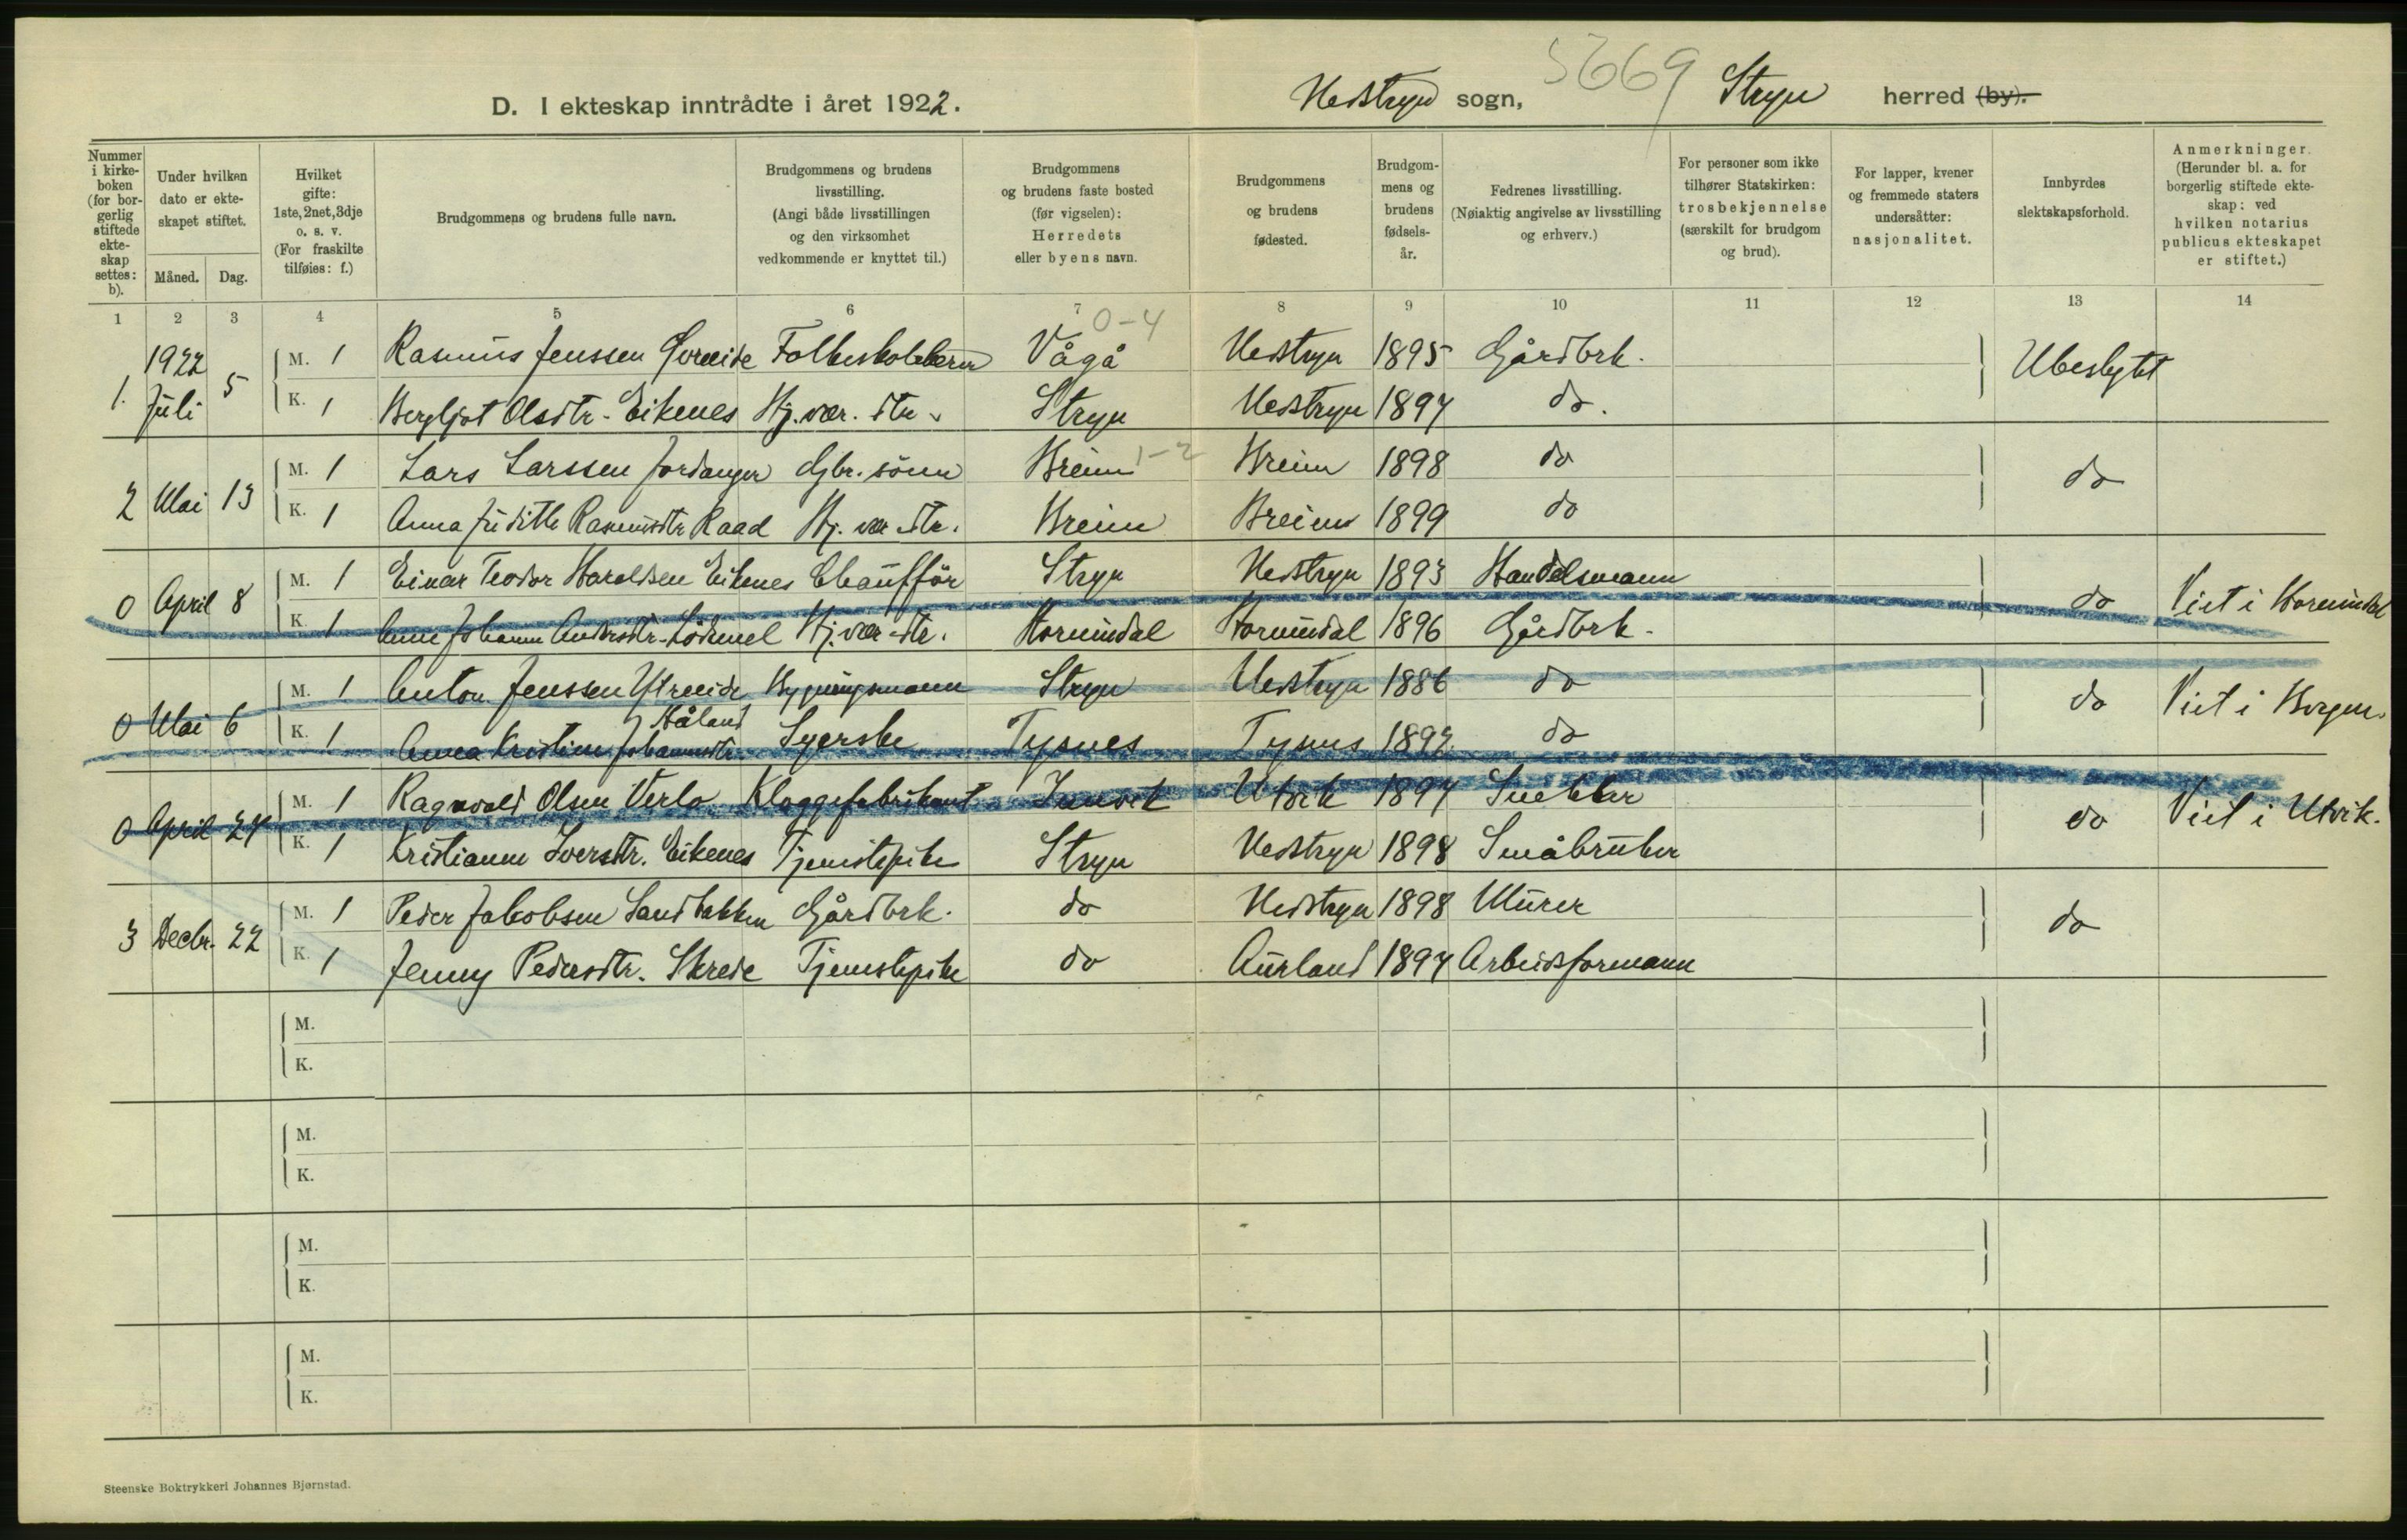 5669
D. I ekteskap inntrådte i året 1922.
Nedstryn sogn, Stryn herred (by).
Nummer i kirke-boken (for bor-gerlig stiftede ekte-skap settes: b).
Under hvilken dato er ekte-skapet stiftet.
Måned. Dag.
Hvilket gifte: 1ste, 2net, 3dje o. s. v. (For fraskilte tilføies: f.)
Brudgommens og brudens fulle navn.
Brudgommens og brudens livsstilling. (Angi både livsstillingen og den virksomhet vedkommende er knyttet til.)
Brudgommens og brudens faste bosted (før vigselen): Herredets eller byens navn.
Brudgommens og brudens fødested.
Brudgom-mens og brudens fødsels-år.
Fedrenes livsstilling. (Nøiaktig angivelse av livsstilling og erhverv.)
For personer som ikke tilhører Statskirken: trosbekjennelse (særskilt for brudgom og brud).
For lapper, kvener og fremmede staters undersåtter: nasjonalitet.
Innbyrdes slektskapsforhold.
Anmerkninger. (Herunder bl. a. for borgerlig stiftede ekte-skap: ved hvilken notarius publicus ekteskapet er stiftet.)
1 2 3 4 5 6 7 8 9 10 11 12 13 14
0-4
1. 1922 Juli 5 M. 1 Rasmus Jenssen Kvreeide Folkeskolelærer Vågå Nedstryn 1895 Gårdbrk. Ubeslegtet
K. 1 Bergljot Olsdtr. Eikenes Hj.vær. dtr. Stryn Nedstryn 1897 do.
2 Mai 13 M. 1 Lars Larssen Jordanger Gbr. sönn Breim 1-2 Breim 1898 do do
K. 1 Anna Judithe Rasmusdtr Raad Hj. vær dtr. Breim Breim 1899 do
0 April 8 M. 1 Einar Teodor Haraldsen Eikenes Chaufför Stryn Nedstryn 1893 Handelsmann do Viet i Hornindal
K. 1 Anne Johanne Andersdtr. Lödemel Hj.vær dtr. Hornindal Hornindal 1896 Gårdbrk.
0 Mai 6 M. 1 Anton Jenssen Ytreeide Bygningsmann Stryn Nedstryn 1886 do do Viet i Bergen.
K. 1 Anna Kristine Johannsdtr. Håland Syerske Tysnes Tysnes 1892 do
0 April 27 M. 1 Ragnvald Olsen Verlo Kloggefabrikant Innvik Utvik 1897 Snekker do Viet i Utvik.
K. 1 Kristianne Iversdtr. Eikenes Tjenestepike Stryn Nedstryn 1898 Småbruker
3 Decbr. 22 M. 1 Peder Jakobsen Sandbakken Gårdbrk. do Nedstryn 1898 Murer do
K. 1 Jenny Pedersdtr. Skrede Tjenestepike do Aurland 1897 Arbeidsformann
M.
K.
M.
K.
M.
K.
M.
K.
Steenske Boktrykkeri Johannes Bjørnstad.